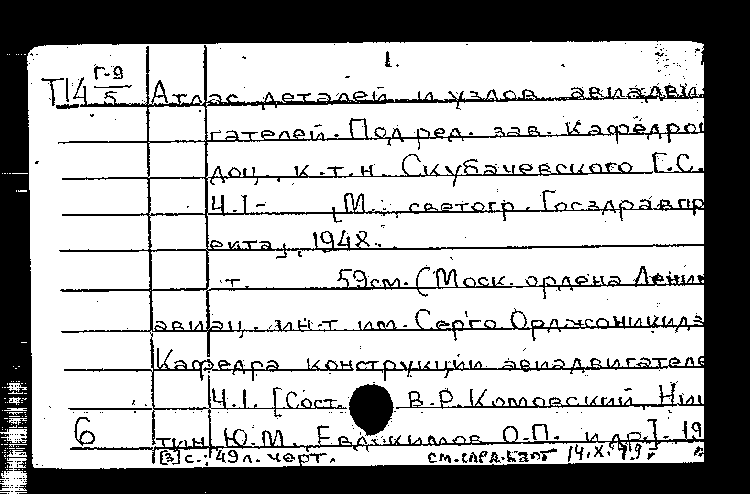 1.
Т14 Г-9/5 Атлас деталей и узлов авиадви
гателей. Под ред. зав. кафедрой
доц., к.т.н. Скубачевского Г.С.
Ч.1- [М., светогр. Госздравпр
оита], 1948.
т. 59см. (Моск. ордена Ленин
авиац. ин-т им. Серго Орджоникидз
Кафедра конструкции авиадвигателе
Ч.1. [Сост. В.Р. Комовский, Ни
6 тин Ю.М., Евдокимов О.П. и др]. 19
[3]с., 49л. черт. 14.X.